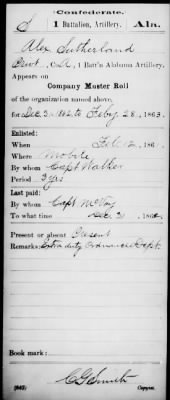 Confederate.
S 1 Battalion, Artillery. Ala.
Alex Sutherland
Pvt, Co. A, 1 Batt'n Alabama Artillery.
Appears on
Company Muster Roll
of the organization named above,
for Dec. 31, 1862 to Feby 28, 1863.
Enlisted:
When Feb. 12, 186
Where Mobile
By whom Capt Walker
Period 3 yrs
Last paid:
By whom Capt McVoy
To what time Dec 31, 1862
Present or absent Present
Remarks: Extra duty Ordnance Dept.
Book mark:
C G Smith
(642) Copyist.